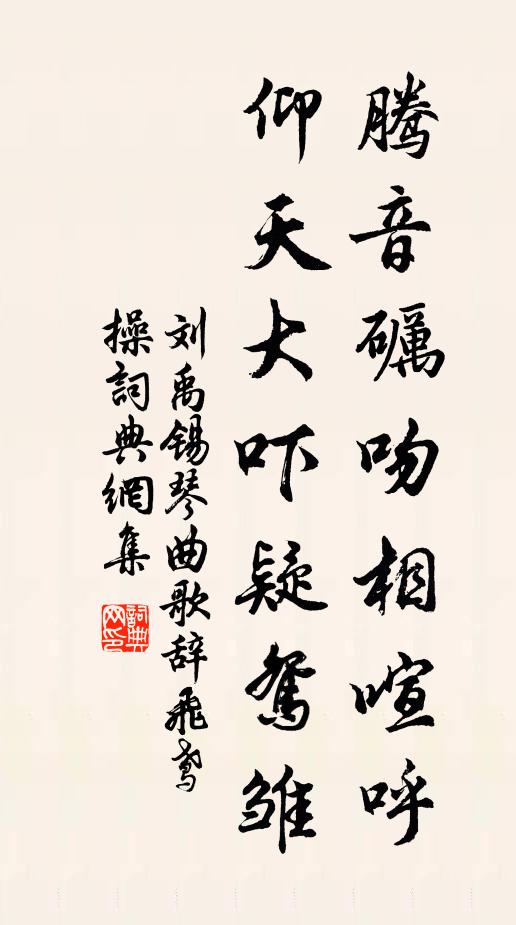 腾音礪吻相喧呼
仰天大吓疑鸳雏
刘禹锡琴曲歌辞飛鸢
操詞典網集
詞典
网印